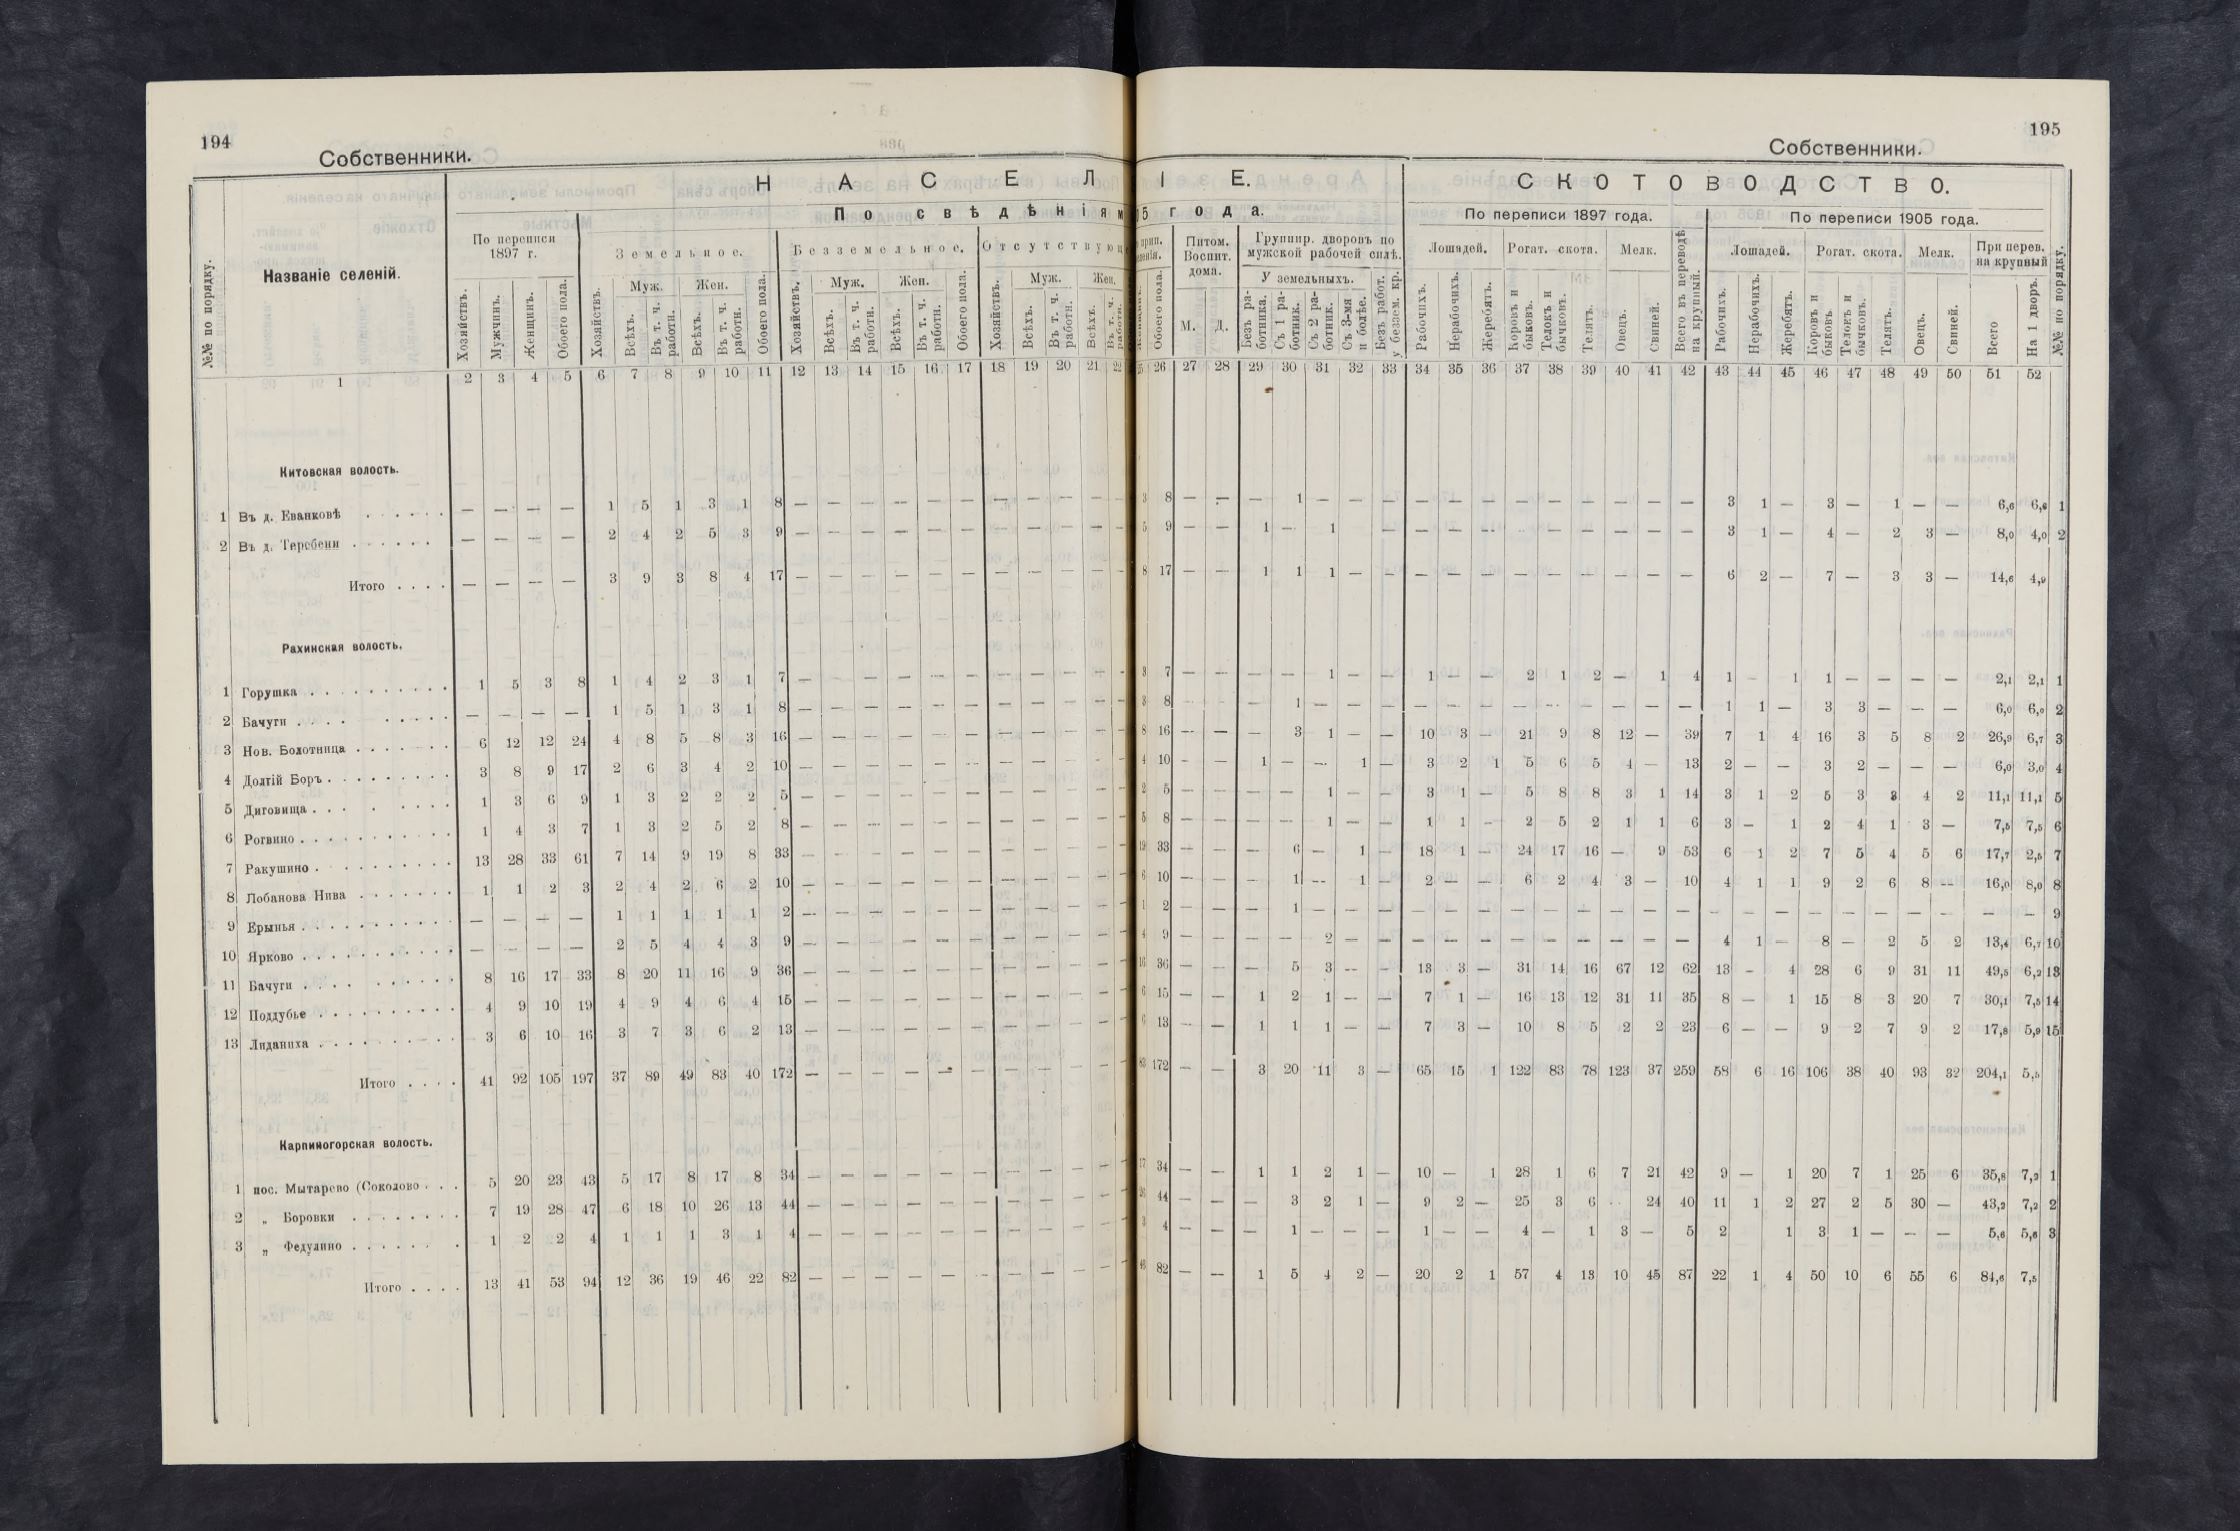 194
Собственники.
НАСЕЛ
По свѣдѣніям
№№ по порядку.
Названіе селеній.
По переписи 1897 г.
Земельное.
Безземельное.
Отсутствующ
Муж. Жен. Муж. Жен. Муж. Жен.
Хозяйствъ. Мужчинъ. Женщинъ. Обоего пола. Хозяйствъ. Всѣхъ. Въ т. ч. работн. Всѣхъ. Въ т. ч. работн. Обоего пола. Хозяйствъ. Всѣхъ. Въ т. ч. работн. Всѣхъ. Въ т. ч. работн. Обоего пола. Хозяйствъ. Всѣхъ. Въ т. ч. работн. Всѣхъ. Въ т. ч.
1 2 3 4 5 6 7 8 9 10 11 12 13 14 15 16 17 18 19 20 21 22
Китовская волость.
1 Въ д. Еванковѣ — — — — 1 5 1 3 1 8 — — — — — — — — — — —
2 Въ д. Теребени — — — — 2 4 2 5 3 9 — — — — — — — — — — —
Итого — — — — 3 9 3 8 4 17 — — — — — — — — — — —
Рахинская волость.
1 Горушка 1 5 3 8 1 4 2 3 1 7 — — — — — — — — — —
2 Бачуги — — — — 1 5 1 3 1 8 — — — — — — — — — — —
3 Нов. Болотница 6 12 12 24 4 8 5 8 3 16 — — — — — — — — — — —
4 Долгій Боръ 3 8 9 17 2 6 3 4 2 10 — — — — — — — — — — —
5 Диговища 1 3 6 9 1 3 2 2 2 5 — — — — — — — — — — —
6 Рогвино 1 4 3 7 1 3 2 5 2 8 — — — — — — — — — — —
7 Ракушино 13 28 33 61 7 14 9 19 8 33 — — — — — — — — — — —
8 Лобанова Нива 1 1 2 3 2 4 2 6 2 10 — — — — — — — — — — —
9 Ерынья — — — — 1 1 1 1 1 2 — — — — — — — — — — —
10 Ярково — — — — 2 5 4 4 3 9 — — — — — — — — — — —
11 Бачуги 8 16 17 33 8 20 11 16 9 36 — — — — — — — — — — —
12 Поддубье 4 9 10 19 4 9 4 6 4 15 — — — — — — — — — — —
13 Лиданиха 3 6 10 16 3 7 3 6 2 13 — — — — — — — — — — —
Итого 41 92 105 197 37 89 49 83 40 172 — — — — — — — — — — —
Карпиногорская волость.
1 пос. Мытарево (Соколово 5 20 23 43 5 17 8 17 8 34 — — — — — — — — — — —
2 „ Боровки 7 19 28 47 6 18 10 26 13 44 — — — — — — — — — — —
3 „ Федулино 1 2 2 4 1 1 1 3 1 4 — — — — — — — — — — —
Итого 13 41 53 94 12 36 19 46 22 82 — — — — — — — — — — —
195
Собственники.
ІЕ.
5 года.
СКОТОВОДСТВО.
По переписи 1897 года. По переписи 1905 года.
Питом. Воспит. дома.
Группир. дворовъ по мужской рабочей силѣ.
У земельныхъ.
Лошадей. Рогат. скота. Мелк. Лошадей. Рогат. скота. Мелк. При перев. на крупный
Обоего пола. М. Д. Безъ работника. Съ 1 работник. Съ 2 работник. Съ 3-мя и болѣе. Безъ работ. у безземк. кр. Рабочихъ. Нерабочихъ. Жеребятъ. Коровъ и быковъ. Телокъ и бычковъ. Телятъ. Овецъ. Свиней. Всего въ переводѣ на крупный. Рабочихъ. Нерабочихъ. Жеребятъ. Коровъ и быковъ Телокъ и бычковъ. Телятъ. Овецъ. Свиней. Всего На 1 дворъ. №№ по порядку.
26 27 28 29 30 31 32 33 34 35 36 37 38 39 40 41 42 43 44 45 46 47 48 49 50 51 52
3 8 — — — 1 — — — — — — — — — — — — 3 1 — 3 — 1 — — 6,6 6,6 1
5 9 — — 1 — 1 — — — — — — — — — — 3 1 — 4 — 2 3 — 8,0 4,0 2
8 17 — — 1 1 1 — — — — — — — — — — — — 6 2 — 7 — 3 3 — 14,6 4,9
3 7 — — — — 1 — — 1 — — 2 1 2 — 1 4 1 — 1 1 — — — — 2,1 2,1 1
3 8 — — — 1 — — — — — — — — — — — — 1 1 — 3 3 — — — 6,0 6,0 2
8 16 — — — 3 1 — — 10 3 — 21 9 8 12 — 39 7 1 4 16 3 5 8 2 26,9 6,7 3
4 10 — — 1 — — 1 — 3 2 1 5 6 5 4 — 13 2 — — 3 2 — — — 6,0 3,0 4
2 5 — — — — 1 — — 3 1 — 5 8 8 3 1 14 3 1 2 5 3 3 4 2 11,1 11,1 5
5 8 — — — — 1 — — 1 1 — 2 5 2 1 1 6 3 — 1 2 4 1 3 — 7,5 7,5 6
19 33 — — — 6 — 1 — 18 1 — 24 17 16 — 9 53 6 1 2 7 5 4 5 6 17,7 2,5 7
6 10 — — — 1 — 1 — 2 — — 6 2 4 3 — 10 4 1 1 9 2 6 8 — 16,0 8,0 8
1 2 — — — 1 — — — — — — — — — — — — — — — — — — — — — — 9
4 9 — — — — 2 — — — — — — — — — — — 4 1 — 8 — 2 5 2 13,4 6,7 10
16 36 — — — 5 3 — — 13 3 — 31 14 16 67 12 62 13 — 4 28 6 9 31 11 49,5 6,2 13
6 15 — — 1 2 1 — — 7 1 — 16 13 12 31 11 35 8 — 1 15 8 3 20 7 30,1 7,5 14
6 13 — — 1 1 1 — — 7 3 — 10 8 5 2 2 23 6 — — 9 2 7 9 2 17,8 5,9 15
83 172 — — 3 20 11 3 — 65 15 1 122 83 78 123 37 259 58 6 16 106 38 40 93 32 204,1 5,5
17 34 — — 1 1 2 1 — 10 — 1 28 1 6 7 21 42 9 — 1 20 7 1 25 6 35,8 7,2 1
26 44 — — — 3 2 1 — 9 2 — 25 3 6 24 40 11 1 2 27 2 5 30 — 43,2 7,2 2
3 4 — — — 1 — — — 1 — — 4 — 1 3 — 5 2 1 3 1 — — — 5,6 5,6 3
46 82 — — 1 5 4 2 — 20 2 1 57 4 13 10 45 87 22 1 4 50 10 6 55 6 84,6 7,5